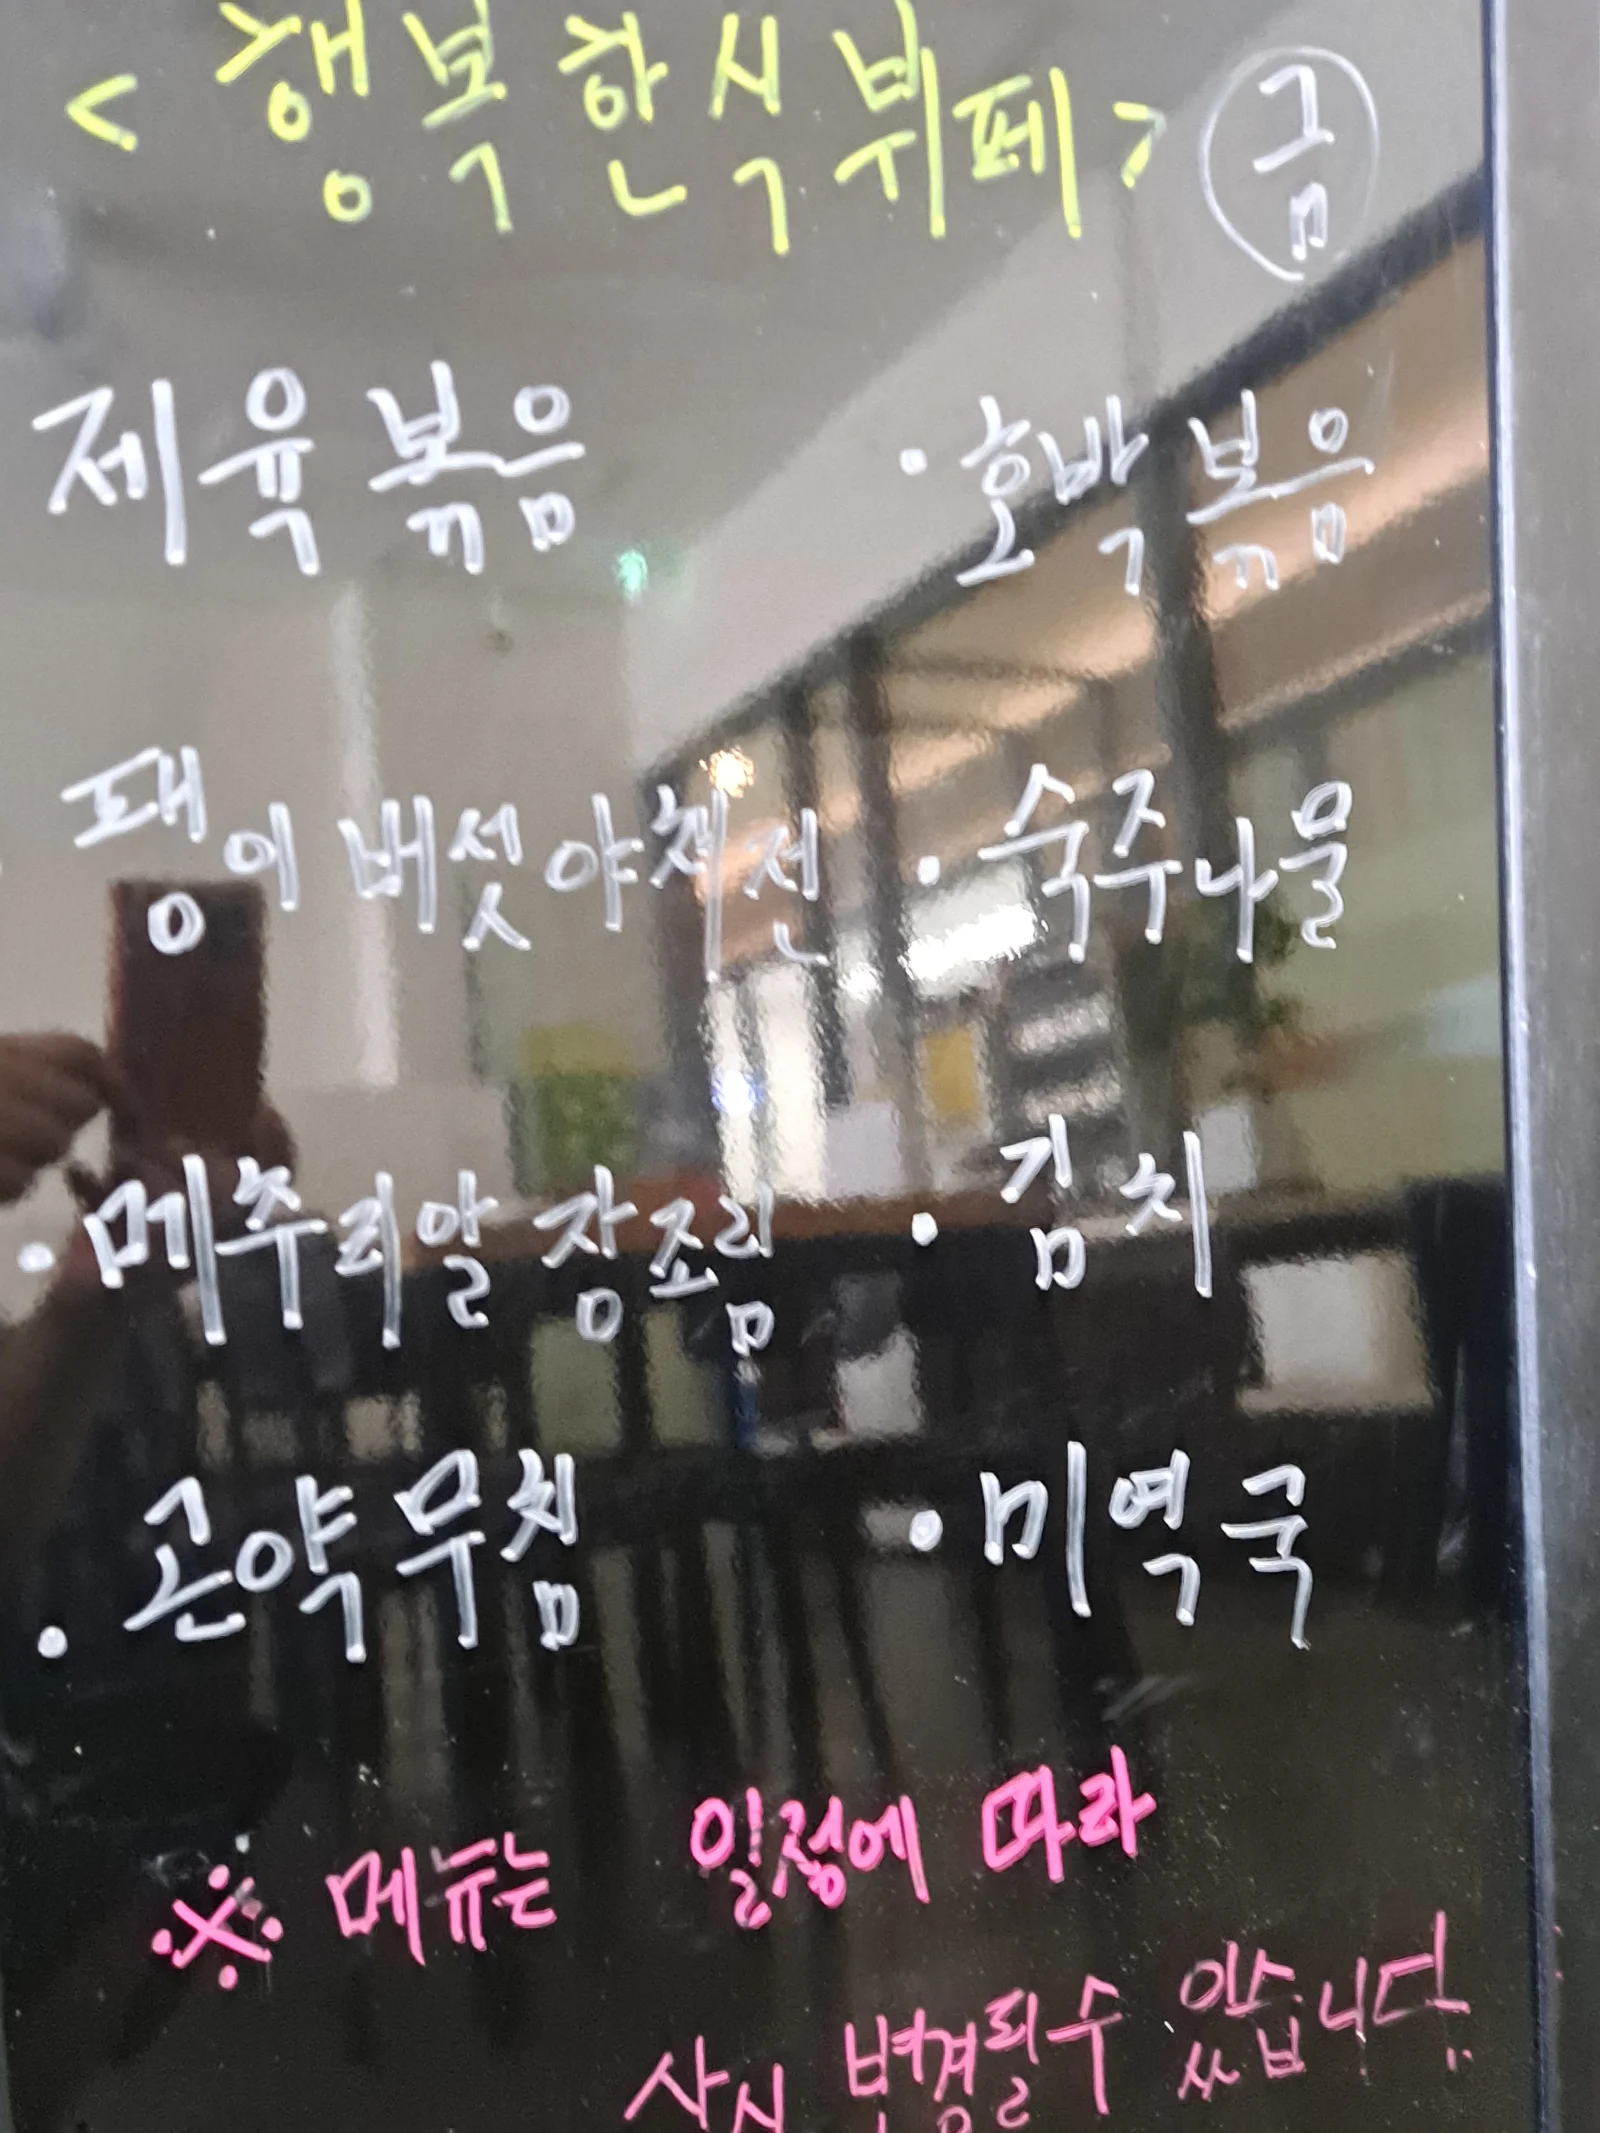 < 행복한식뷔페 > 금
제육볶음
· 호박볶음
팽이버섯야채전
· 숙주나물
· 메추리알 장조림
· 김치
· 곤약무침
· 미역국
※ 메뉴는 일정에 따라
사시 변경될수 있습니다.